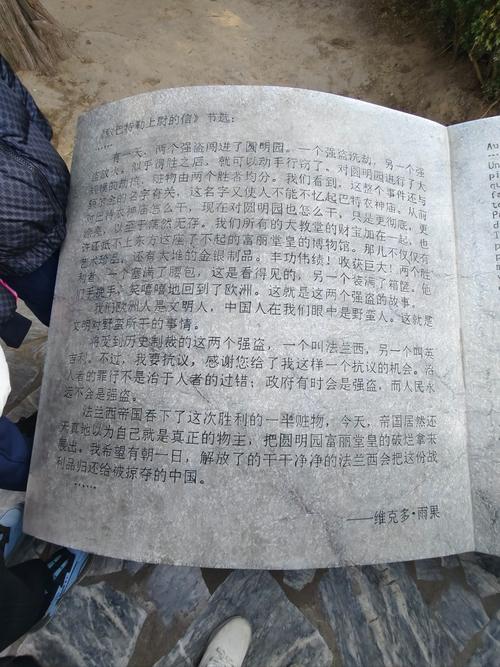 《致巴特勒上尉的信》节选：
……
有一天，两个强盗闯进了圆明园。一个强盗洗劫，另一个强
盗放火。似乎得胜之后，就可以动手行窃了。对圆明园进行了大
规模的劫掠，赃物由两个胜者均分。我们看到，这整个事件还与
额尔金的名字有关，这名字又使人不能不忆起巴特农神庙。从前
对巴特农神庙怎么干，现在对圆明园也怎么干，只是更彻底，更
漂亮，以至于荡然无存。我们所有的大教堂的财宝加在一起，也
许还抵不上东方这座了不起的富丽堂皇的博物馆。那儿不仅仅有
艺术珍品，还有大堆的金银制品。丰功伟绩！收获巨大！两个胜
利者，一个塞满了腰包，这是看得见的，另一个装满了箱箧。他
们手挽手，笑嘻嘻地回到了欧洲。这就是这两个强盗的故事。
我们欧洲人是文明人，中国人在我们眼中是野蛮人。这就是
文明对野蛮所干的事情。
将受到历史制裁的这两个强盗，一个叫法兰西，另一个叫英
吉利。不过，我要抗议，感谢您给了我这样一个抗议的机会。治
人者的罪行不是治于人者的过错；政府有时会是强盗，而人民永
远不会是强盗。
法兰西帝国吞下了这次胜利的一半赃物，今天，帝国居然还
天真地以为自己就是真正的物主，把圆明园富丽堂皇的破烂拿来
展出。我希望有朝一日，解放了的干干净净的法兰西会把这份战
利品归还给被掠夺的中国。
……
——维克多·雨果
Au